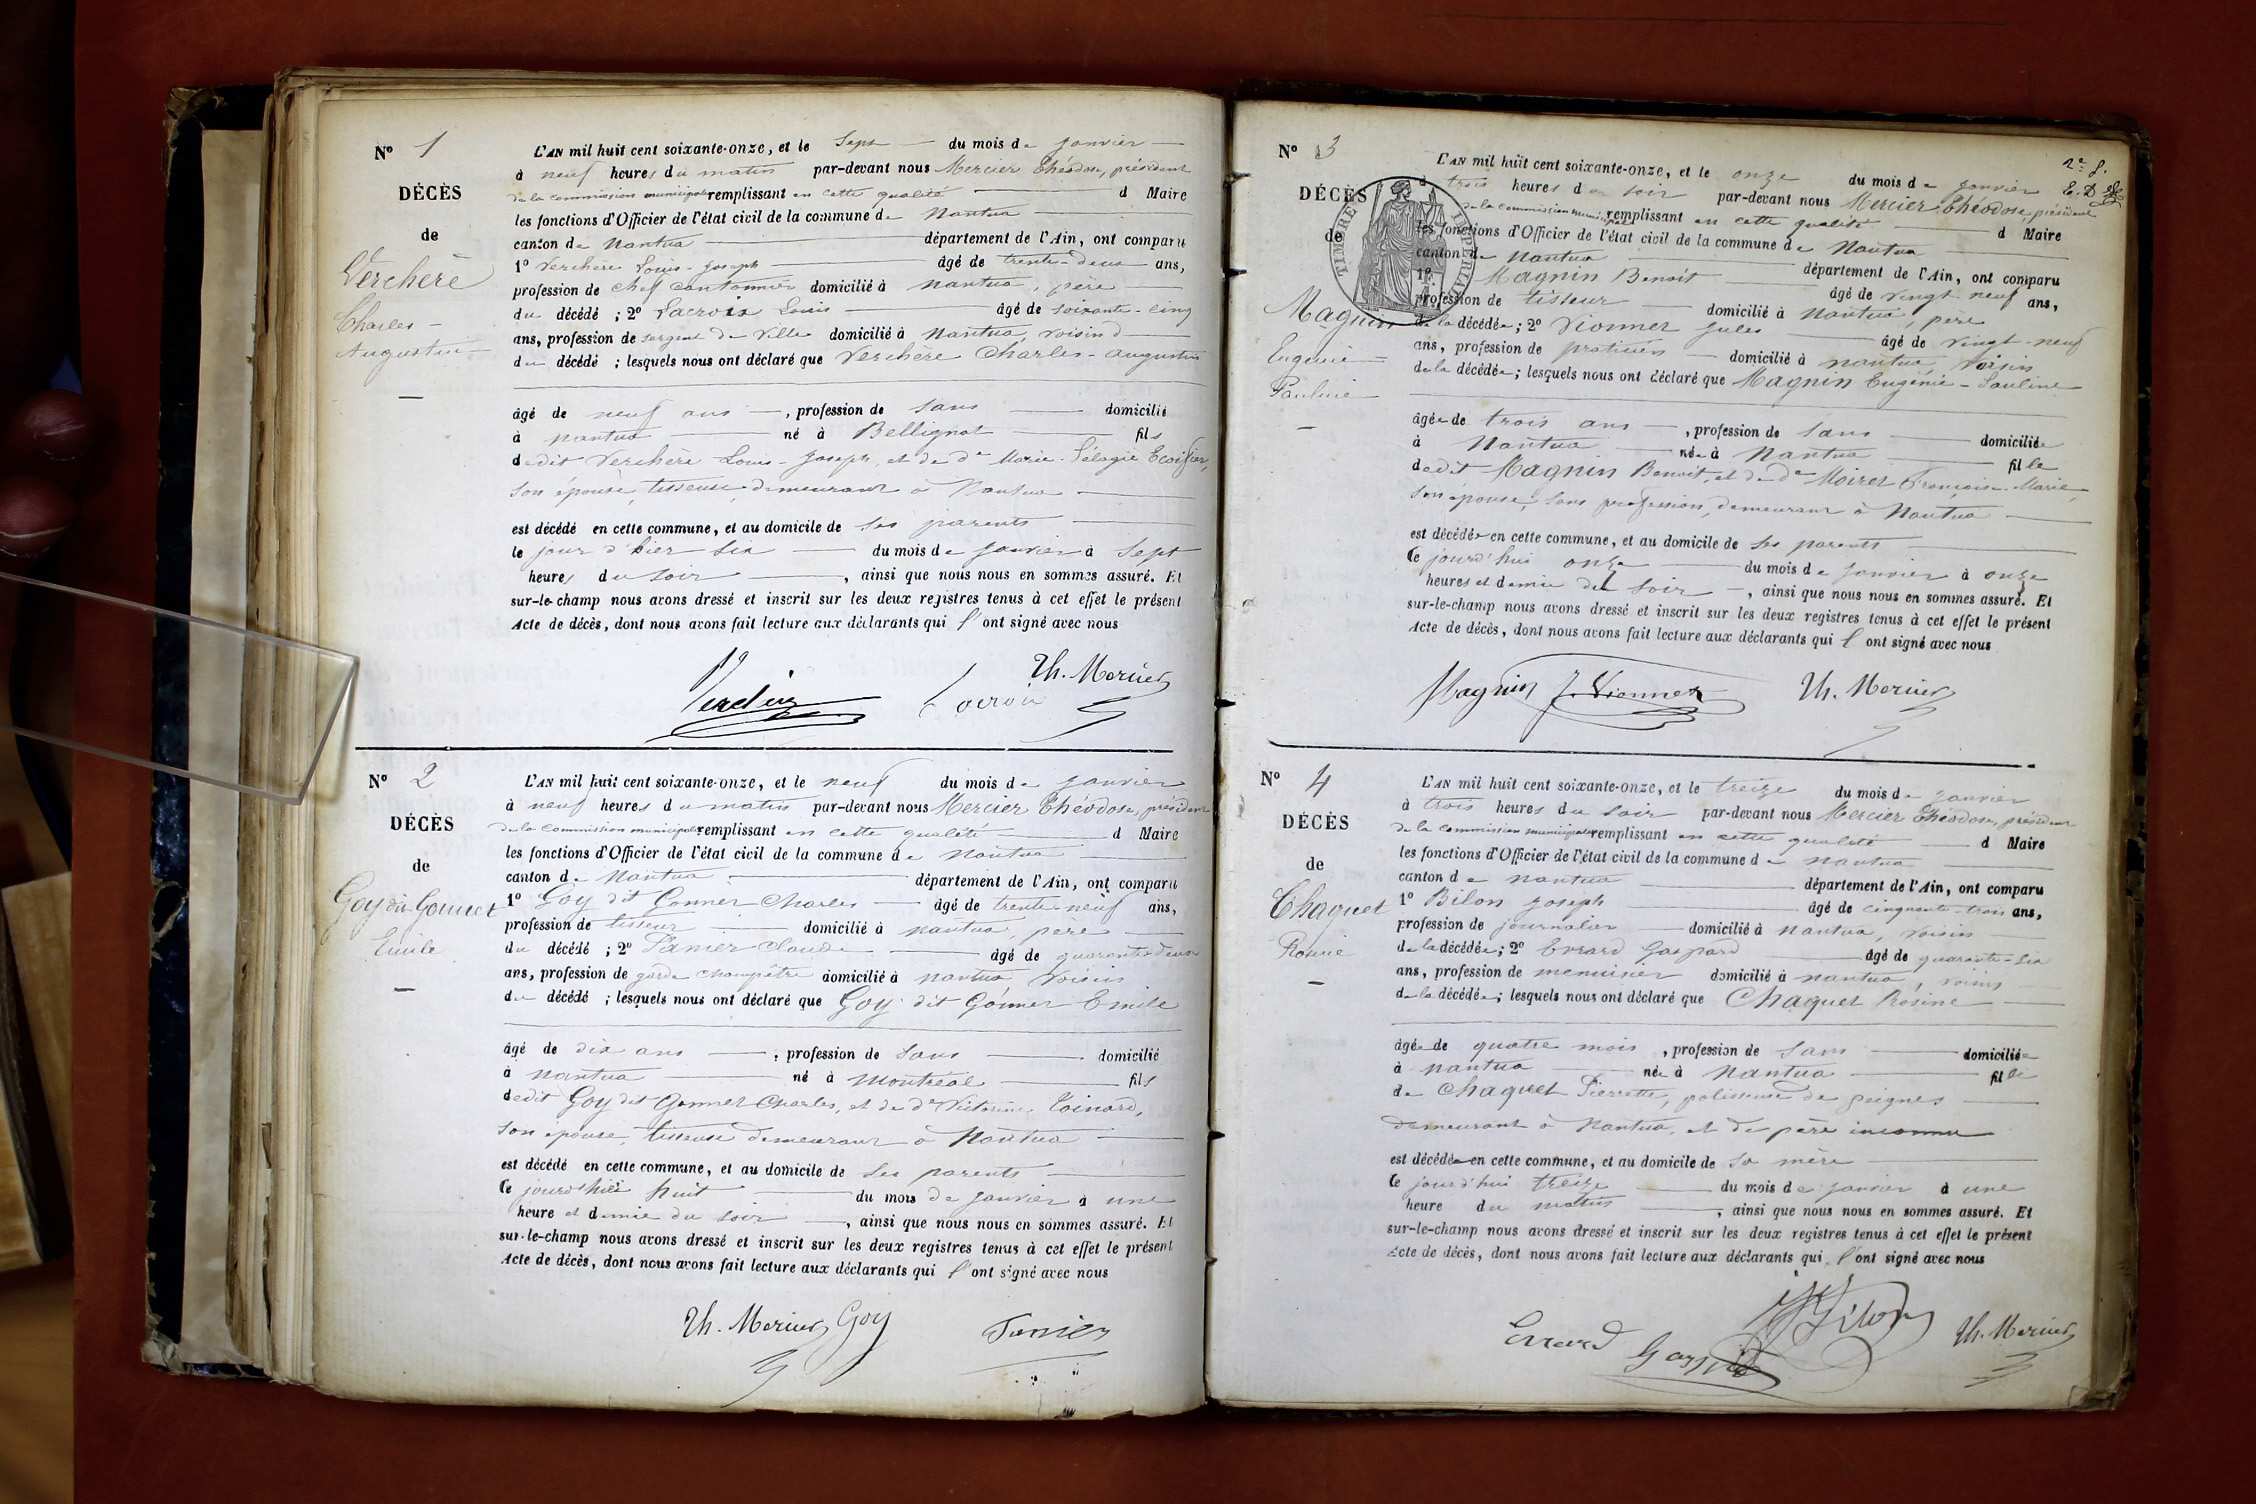 N° 1
DÉCÈS
de
Verchère
Charles-
Augustin
L'AN mil huit cent soixante-onze, et le Sept du mois de Janvier
à neuf heures du matin par-devant nous Mercier Théodose, président
de la commission municipale remplissant en cette qualité d Maire
les fonctions d'Officier de l'état civil de la commune de Nantua
canton de Nantua département de l'Ain, ont comparu
1° Verchère Louis-Joseph âgé de trente-deux ans,
profession de chef cantonnier domicilié à Nantua, père
du décédé ; 2° Lacroix Louis âgé de soixante-cinq
ans, profession de sergent de ville domicilié à Nantua, voisin d
du décédé ; lesquels nous ont déclaré que Verchère Charles-Augustin
âgé de neuf ans , profession de sans domicilié
à Nantua né à Bellignat fils
dedit Verchère Louis-Joseph, et de de Marie-Pélagie
son épouse, tisseuse demeurant à Nantua
est décédé en cette commune, et au domicile de ses parents
le jour d'hier six du mois de Janvier à sept
heures du soir , ainsi que nous nous en sommes assuré. Et
sur-le-champ nous avons dressé et inscrit sur les deux registres tenus à cet effet le présent
Acte de décès, dont nous avons fait lecture aux déclarants qui l'ont signé avec nous
Th. Mercier
Lacroix
N° 2
DÉCÈS
de
Goy dit Gonnet
Emile
L'AN mil huit cent soixante-onze, et le neuf du mois de Janvier
à neuf heures du matin par-devant nous Mercier Théodose, président
de la commission municipale remplissant en cette qualité d Maire
les fonctions d'Officier de l'état civil de la commune de Nantua
canton de Nantua département de l'Ain, ont comparu
1° Goy dit Gonnet Charles âgé de trente-neuf ans,
profession de tisseur domicilié à Nantua, père
du décédé ; 2° Claude âgé de quarante-deux
ans, profession de garde champêtre domicilié à Nantua voisin
du décédé ; lesquels nous ont déclaré que Goy dit Gonnet Emile
âgé de dix ans , profession de sans domicilié
à Nantua né à Montréal fils
dedit Goy dit Gonnet Charles, et de de Victorine
son épouse, tisseuse demeurant à Nantua
est décédé en cette commune, et au domicile de ses parents
le jour d'hier huit du mois de Janvier à une
heure et demie du soir , ainsi que nous nous en sommes assuré. Et
sur-le-champ nous avons dressé et inscrit sur les deux registres tenus à cet effet le présent
Acte de décès, dont nous avons fait lecture aux déclarants qui l'ont signé avec nous
Th. Mercier Goy
N° 3
DÉCÈS
de
Magnin
Eugénie
Pauline
TIMBRE IMPÉRIAL
2e f.
L'AN mil huit cent soixante-onze, et le onze du mois de Janvier
à trois heures du soir par-devant nous Mercier Théodose, président
de la commission municipale remplissant en cette qualité d Maire
les fonctions d'Officier de l'état civil de la commune de Nantua
canton de Nantua département de l'Ain, ont comparu
1° Magnin Benoit âgé de vingt-neuf ans,
profession de tisseur domicilié à Nantua, père
de la décédée ; 2° Vionnet Jules âgé de vingt-neuf
ans, profession de praticien domicilié à Nantua, voisin
de la décédée ; lesquels nous ont déclaré que Magnin Eugénie-Pauline
âgée de trois ans , profession de sans domiciliée
à Nantua née à Nantua fille
dedit Magnin Benoit, et de de Moiret Françoise-Marie,
son épouse, sans profession, demeurant à Nantua
est décédée en cette commune, et au domicile de ses parents
le jourd'hui onze du mois de Janvier à onze
heures et demie du soir , ainsi que nous nous en sommes assuré. Et
sur-le-champ nous avons dressé et inscrit sur les deux registres tenus à cet effet le présent
Acte de décès, dont nous avons fait lecture aux déclarants qui l'ont signé avec nous
Magnin J. Vionnet Th. Mercier
N° 4
DÉCÈS
de
Chaquet
Rosine
L'AN mil huit cent soixante-onze, et le treize du mois de Janvier
à trois heures du soir par-devant nous Mercier Théodose, président
de la commission municipale remplissant en cette qualité d Maire
les fonctions d'Officier de l'état civil de la commune de Nantua
canton de Nantua département de l'Ain, ont comparu
1° Bilon Joseph âgé de cinquante-trois ans,
profession de journalier domicilié à Nantua, voisin
de la décédée ; 2° Evrard Gaspard âgé de quarante-six
ans, profession de menuisier domicilié à Nantua, voisin
de la décédée ; lesquels nous ont déclaré que Chaquet Rosine
âgée de quatre mois , profession de sans domiciliée
à Nantua née à Nantua fille
de Chaquet Pierrette, polisseuse de peignes
demeurant à Nantua, et de père inconnu
est décédée en cette commune, et au domicile de sa mère
le jourd'hui treize du mois de Janvier à une
heure du matin , ainsi que nous nous en sommes assuré. Et
sur-le-champ nous avons dressé et inscrit sur les deux registres tenus à cet effet le présent
Acte de décès, dont nous avons fait lecture aux déclarants qui l'ont signé avec nous
Evrard Gaspard Bilon Th. Mercier